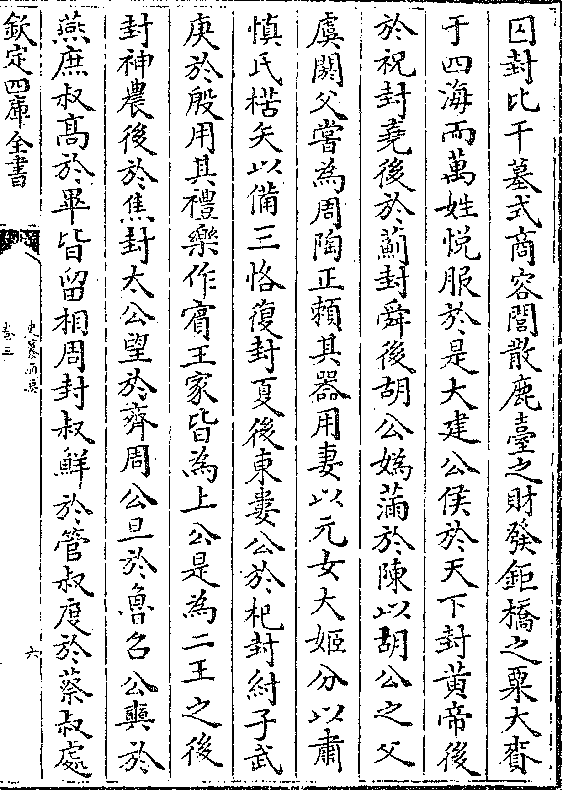 囚封比干墓式商容閭散鹿臺之財發鉅橋之粟大賚
于四海而萬姓悦服於是大建公侯於天下封黄帝後
於祝封堯後於薊封舜後胡公媯蒲於陳以胡公之父
虞閼父嘗為周陶正頼其器用妻以元女大姬分以肅
慎氏楛矢以備三恪復封夏後東婁公於杞封紂子武
庚於殷用其禮樂作賔王家皆為上公是為二王之後
封神農後於焦封太公望於齊周公旦於魯召公奭於
燕庶叔髙於畢皆留相周封叔鮮於管叔度於蔡叔處
欽定四庫全書
卷三
六